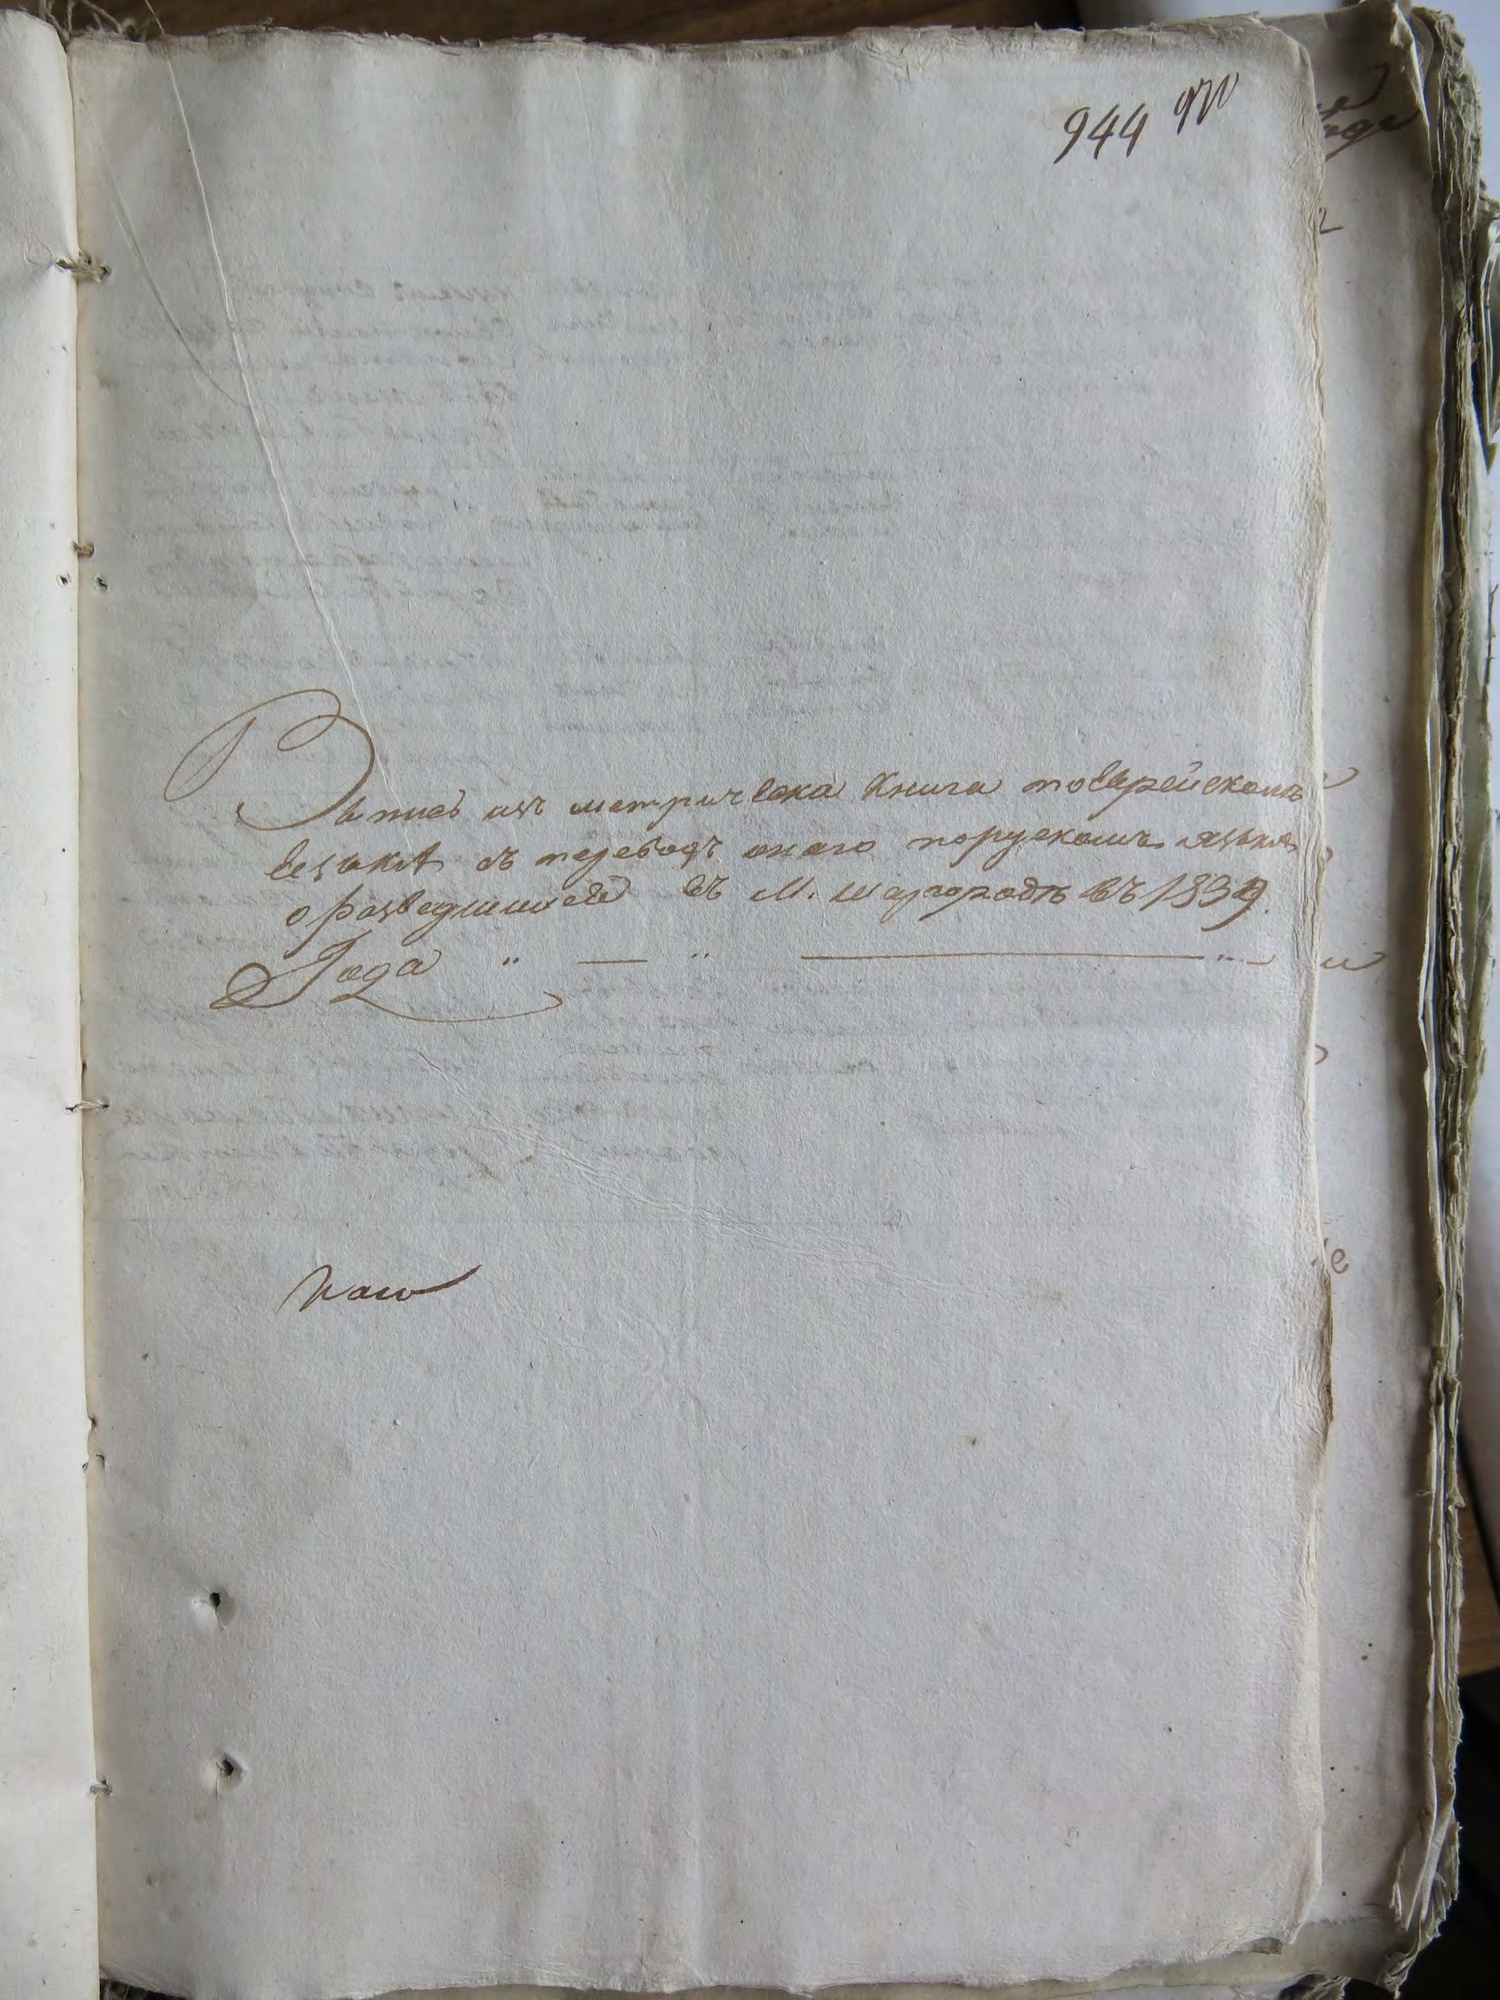 944 970
Выпись изъ метрическа книга поеврейскомъ
языкѣ съ переводъ онаго порускомъ языкѣ
о разведшихся въ М. Шаргородѣ въ 1839.
Года „ — „ —